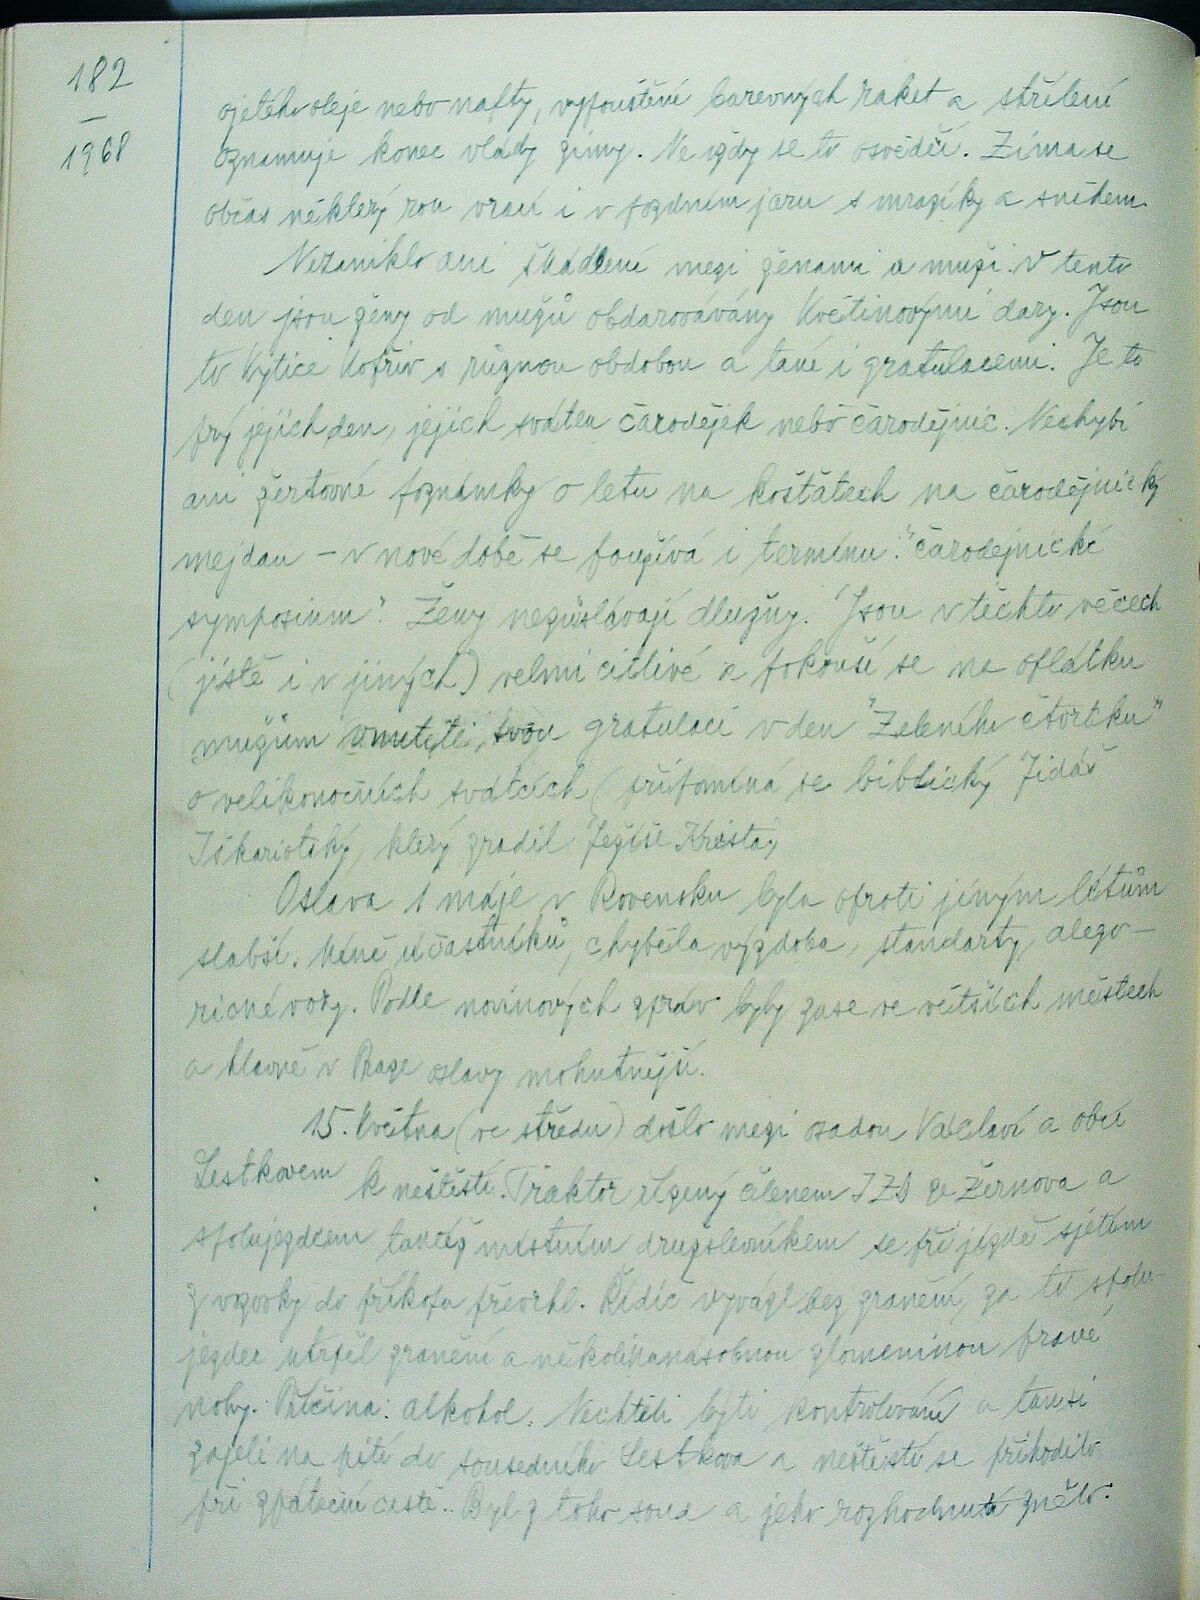 182
—
1968
ojetého oleje nebo nafty, vypouštění barevných raket a střílení
oznamuje konec vlády zimy. Ne vždy se to osvědčí. Zima se
občas některý rok vrací i v pozdním jaru s mrazíky a sněhem.
Nezaniklo ani škádlení mezi ženami a muži. V tento
den jsou ženy od mužů obdarovávány květinovými dary. Jsou
to kytice kopřiv s různou obdobou a také i gratulacemi. Je to
prý jejich den, jejich svátek čarodějek nebo čarodějnic. Nechybí
ani žertovné poznámky o letu na košťatech na čarodějnický
mejdan – v nové době se používá i termínu: "čarodejnické
symposium". Ženy nezůstávají dlužny. Jsou v těchto věcech
(jistě i v jiných) velmi citlivé a pokouší se na oplátku
mužům vnutiti svou gratulaci v den "Zeleného čtvrtku"
o velikonočních svátcích (připomíná se biblický Jidáš
Iškariotský, který zradil Ježíše Krista)
Oslava 1 máje v Rovensku byla oproti jiným létům
slabší. Méně účastníků, chyběla výzdoba, standarty, alego-
rické vozy. Podle novinových zpráv byly zase ve větších městech
a hlavně v Praze oslavy mohutnější.
15. května (ve středu) došlo mezi osadou Václaví a obcí
Lestkovem k neštěstí. Traktor řízený členem JZD ze Žernova a
spolujezdcem taktéž místním družstevníkem se při jízdě sjetím
z vozovky do příkopu převrhl. Řidič vyvázl bez zranění, za to spolu-
jezdec utrpěl zranění a několikanásobnou zlomeninou pravé
nohy. Příčina: alkohol. Nechtěli býti kontrolováni a tak si
zajeli na pití do sousedního Lestkova a neštěstí se přihodilo
při zpáteční cestě.. Byl z toho soud a jeho rozhodnutí znělo: